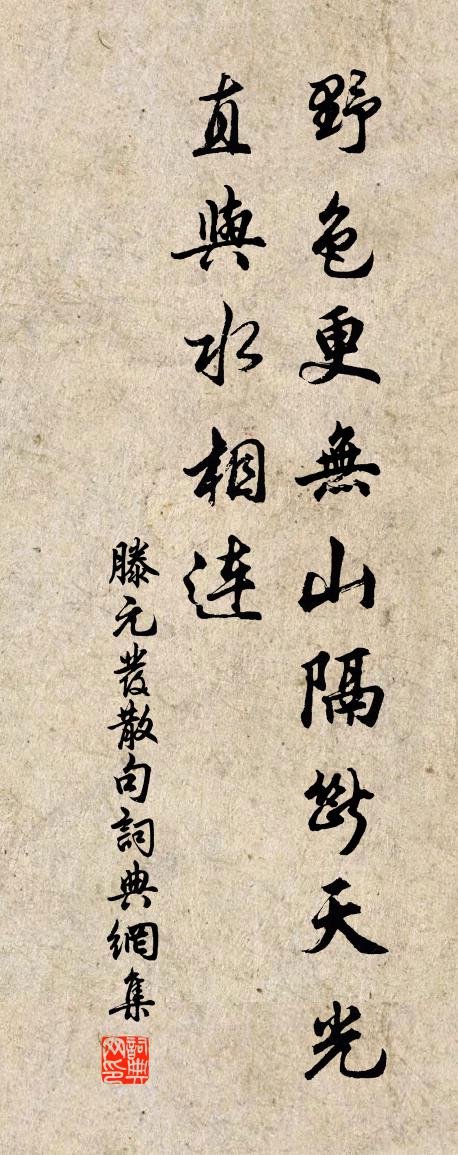 野色更無山隔斷天光
直與水相連
滕元發散句詞典網集
詞典网印